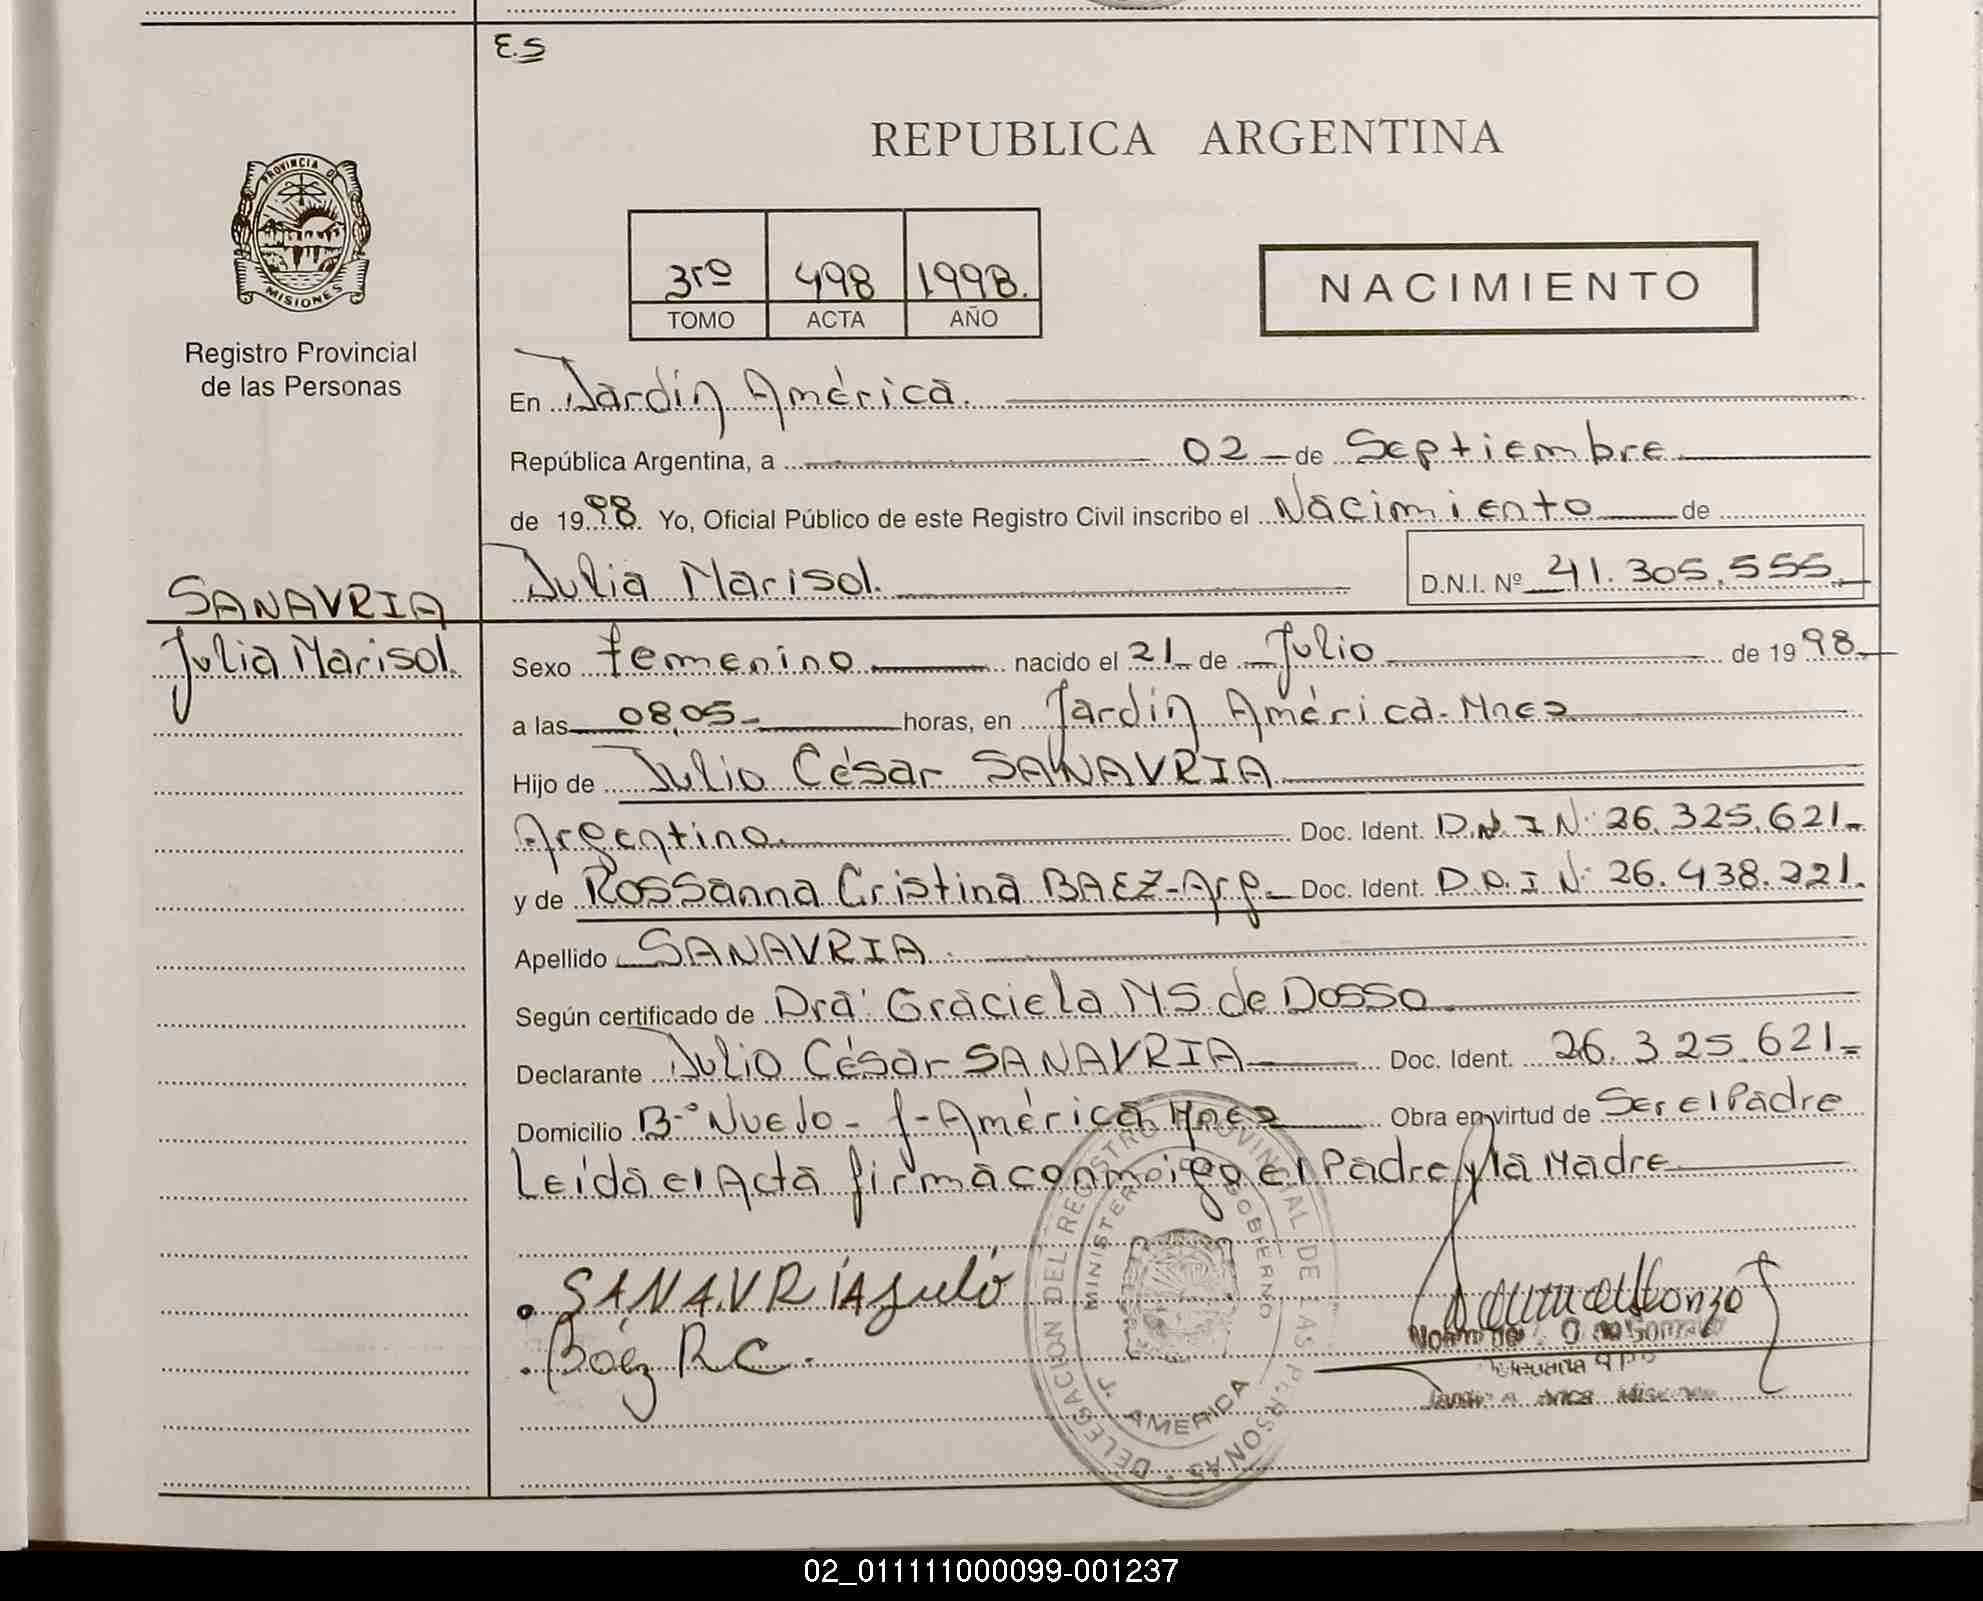 E.S
REPUBLICA ARGENTINA
PROVINCIA D
MISIONES
3ro 498 1998.
TOMO ACTA AÑO
NACIMIENTO
Registro Provincial
de las Personas
En Jardín América.
República Argentina, a 02 de Septiembre
de 1998. Yo, Oficial Público de este Registro Civil inscribo el Nacimiento de
Julia Marisol. D.N.I. Nº 41.305.555
SANAVRIA
Julia Marisol.
Sexo femenino nacido el 21 de Julio de 1998
a las 08,05 horas, en Jardín América-Mnes
Hijo de Julio César SANAVRIA
Argentino. Doc. Ident. D.N.I Nº 26.325.621
y de Rossanna Cristina BAEZ-Arg. Doc. Ident. D.N.I Nº 26.438.221.
Apellido SANAVRIA
Según certificado de Dra: Graciela MS de Dosso
Declarante Julio César SANAVRIA Doc. Ident. 26.325.621
Domicilio B-º Nuevo - J-América Mnes Obra en virtud de Ser el Padre
Leída el Acta firma conmigo el Padre y la Madre
SANAVRIA Julio
Báez R C.
DELEGACION DEL REGISTRO PROVINCIAL DE LAS PERSONAS
MINISTER GOBIERNO
J. AMERICA
02_011111000099-001237